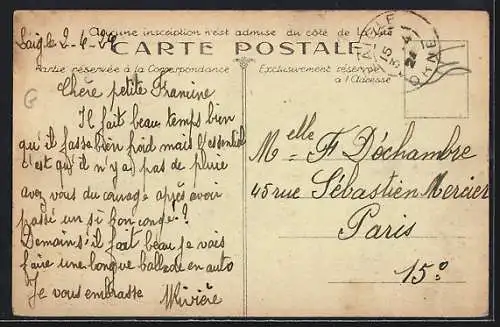 Aucune inscription n'est admise du côté de la Vue
CARTE POSTALE
Partie réservée à la Correspondance
Exclusivement réservée
à l'Adresse
Chère petite Francine
Il fait beau temps bien
qu'il fasse bien froid mais l'essentiel
c'est qu'il n'y a pas de pluie
avez vous du courage après avoir
passé un si bon congé?
Demain s'il fait beau je vais
faire une longue ballade en auto
Je vous embrasse
Rivière
Melle F Déchambre
45 rue Sébastien Mercier
Paris
15e
ORNE
G